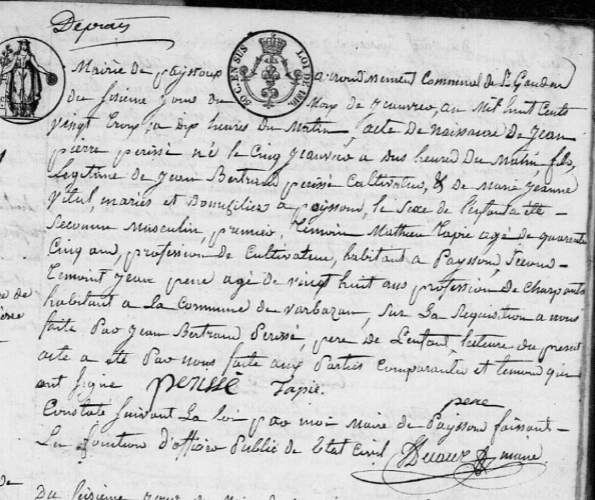 50 C. EN SUS
LOI DE 1816
Mairie de payssous arrondissement Communal de St Gaudens
du sixieme jour du Mois de Jeanvier, an Mil huit Cents
vingt trois, a dix heures du Matin, acte de Naissance de Jean
pierre perissé né le Cinq Jeanvier a heures du Matin, fils
legitime de Jean Bertrand perissé Cultivateur, & de Marie Jeanne
Vital, mariés et domiciliés a payssous, le sexe de l'enfant a été
reconnu Masculin, premier temoin Mathieu Tapie agé de quarante
Cinq ans, profession de Cultivateur, habitant a Payssous, second
temoint Jean pere agé de vingt huit ans profession de Charpantier
habitant a la Commune de barbazan, sur la requisition a nous
faite par Jean Bertrand Perissé, pere de l'enfant, lecture du present
acte a été par nous faite aux Parties Comparantes et temoins qui
ont signé PERISSE Tapie.
pere
Constaté suivant la loi par moi Maire de Payssous faisant
La fonction d'officier Public de l'etat Civil maire